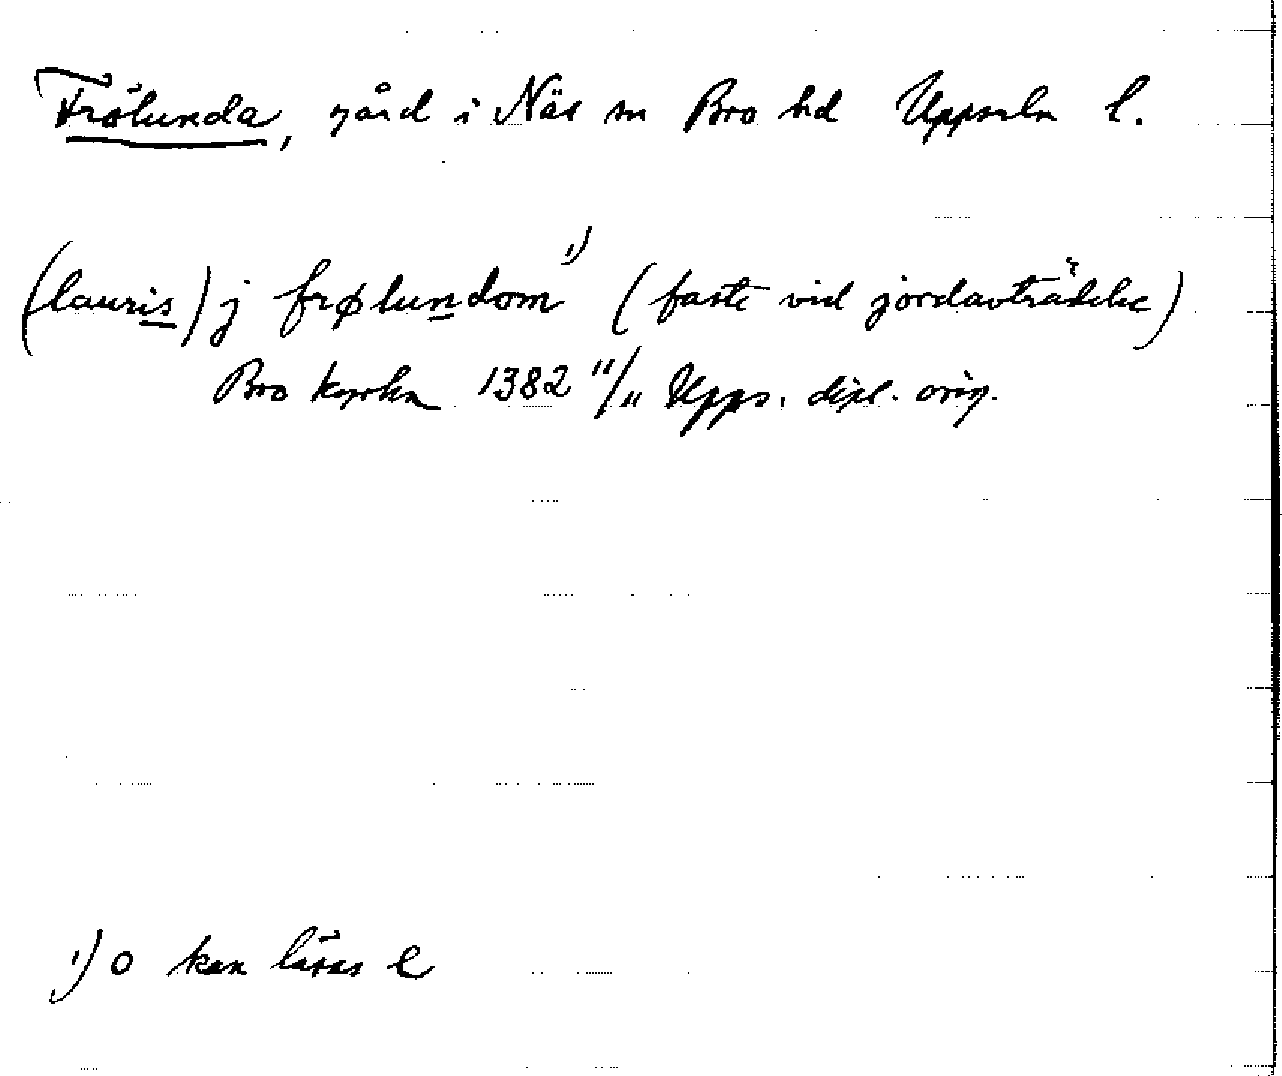 Frölunda, gård i Näs sn Bro hd Uppsala l.
(lauris) j frølundom 1) (faste vid jordavträdelse)
Bro kyrka 1382 11/11 Upps. dipl. orig.
1) o kan läsas e